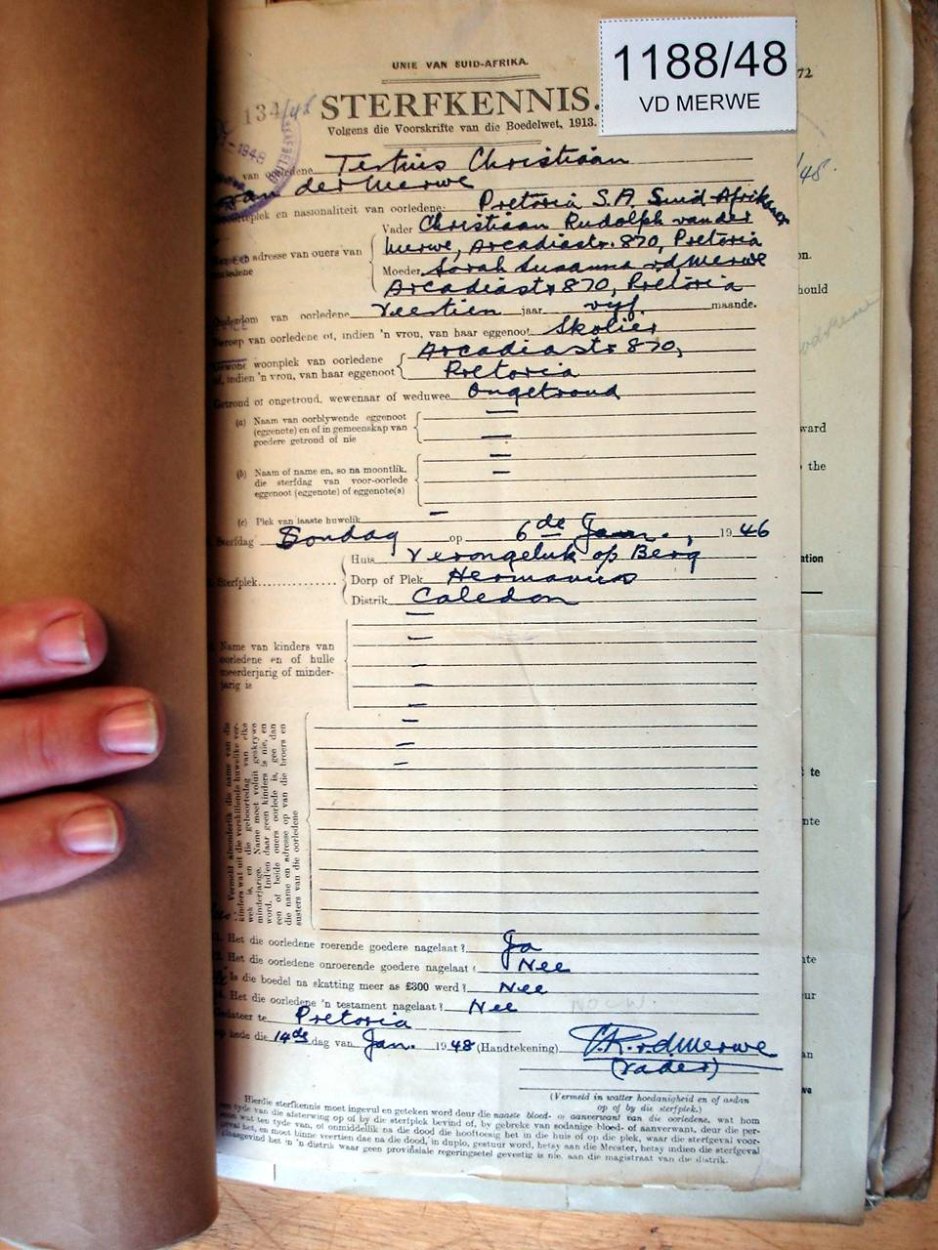 1188/48
VD MERWE
UNIE VAN SUID-AFRIKA.
134/48 STERFKENNIS.
Volgens die Voorskrifte van die Boedelwet, 1913.
72
van oorledene Tertius Christiaan
van der Merwe
en nasionaliteit van oorledene: Pretoria S.A. Suid-Afrikaner
Vader Christiaan Rudolph van der
Merwe, Arcadiastr. 870, Pretoria
adresse van ouers van
Moeder Sarah Susanna v.d. Merwe
Arcadiastr 870, Pretoria
van oorledene Veertien jaar vyf maande.
van oorledene of, indien 'n vrou, van haar eggenoot Skolier
woonplek van oorledene
of, indien 'n vrou, van haar eggenoot
Arcadiastr 870,
Pretoria
Getroud of ongetroud, wewenaar of weduwee Ongetroud
(a) Naam van oorblywende eggenoot
(eggenote) en of in gemeenskap van
goedere getroud of nie
(b) Naam of name en, so na moontlik,
die sterfdag van voor-oorlede
eggenoot (eggenote) of eggenote(s)
(c) Plek van laaste huwelik
Sterfdag Sondag op 6de Jan., 1946
Sterfplek
Huis Verongeluk op Berg
Dorp of Plek Hermanus
Distrik Caledon
Name van kinders van
oorledene en of hulle
meerderjarig of minder-
jarig is
Vermeld afsonderlik die name van die
kinders wat uit die verskillende huwelike ver-
wek is, en die geboortedag van elke
minderjarige. Name moet voluit geskrywe
word. Indien daar geen kinders is nie, en
een of beide ouers oorlede is, gee dan
die name en adresse op van die broers en
susters van die oorledene
Het die oorledene roerende goedere nagelaat? Ja
Het die oorledene onroerende goedere nagelaat? Nee
Is die boedel na skatting meer as £300 werd? Nee
Het die oorledene 'n testament nagelaat? Nee
Gedateer te Pretoria
hede die 14de dag van Jan. 1948 (Handtekening) C.R. v.d. Merwe
(Vader)
(Vermeld in watter hoedanigheid en of aedan
op of by die sterfplek.)
Hierdie sterfkennis moet ingevul en geteken word deur die naaste bloed- of aanverwant van die oorledene, wat hom
ten tyde van die afsterwing op of by die sterfplek bevind of, by gebreke van sodanige bloed- of aanverwant, deur die per-
soon wat ten tyde van, of onmiddellik na die dood die hooftoesig het in die huis of op die plek, waar die sterfgeval voor-
geval het, en moet binne veertien dae na die dood, in duplo, gestuur word, hetsy aan die Meester, hetsy indien die sterfgeval
plaasgevind het in 'n distrik waar geen provinsiale regeringsetel gevestig is nie, aan die magistraat van die distrik.